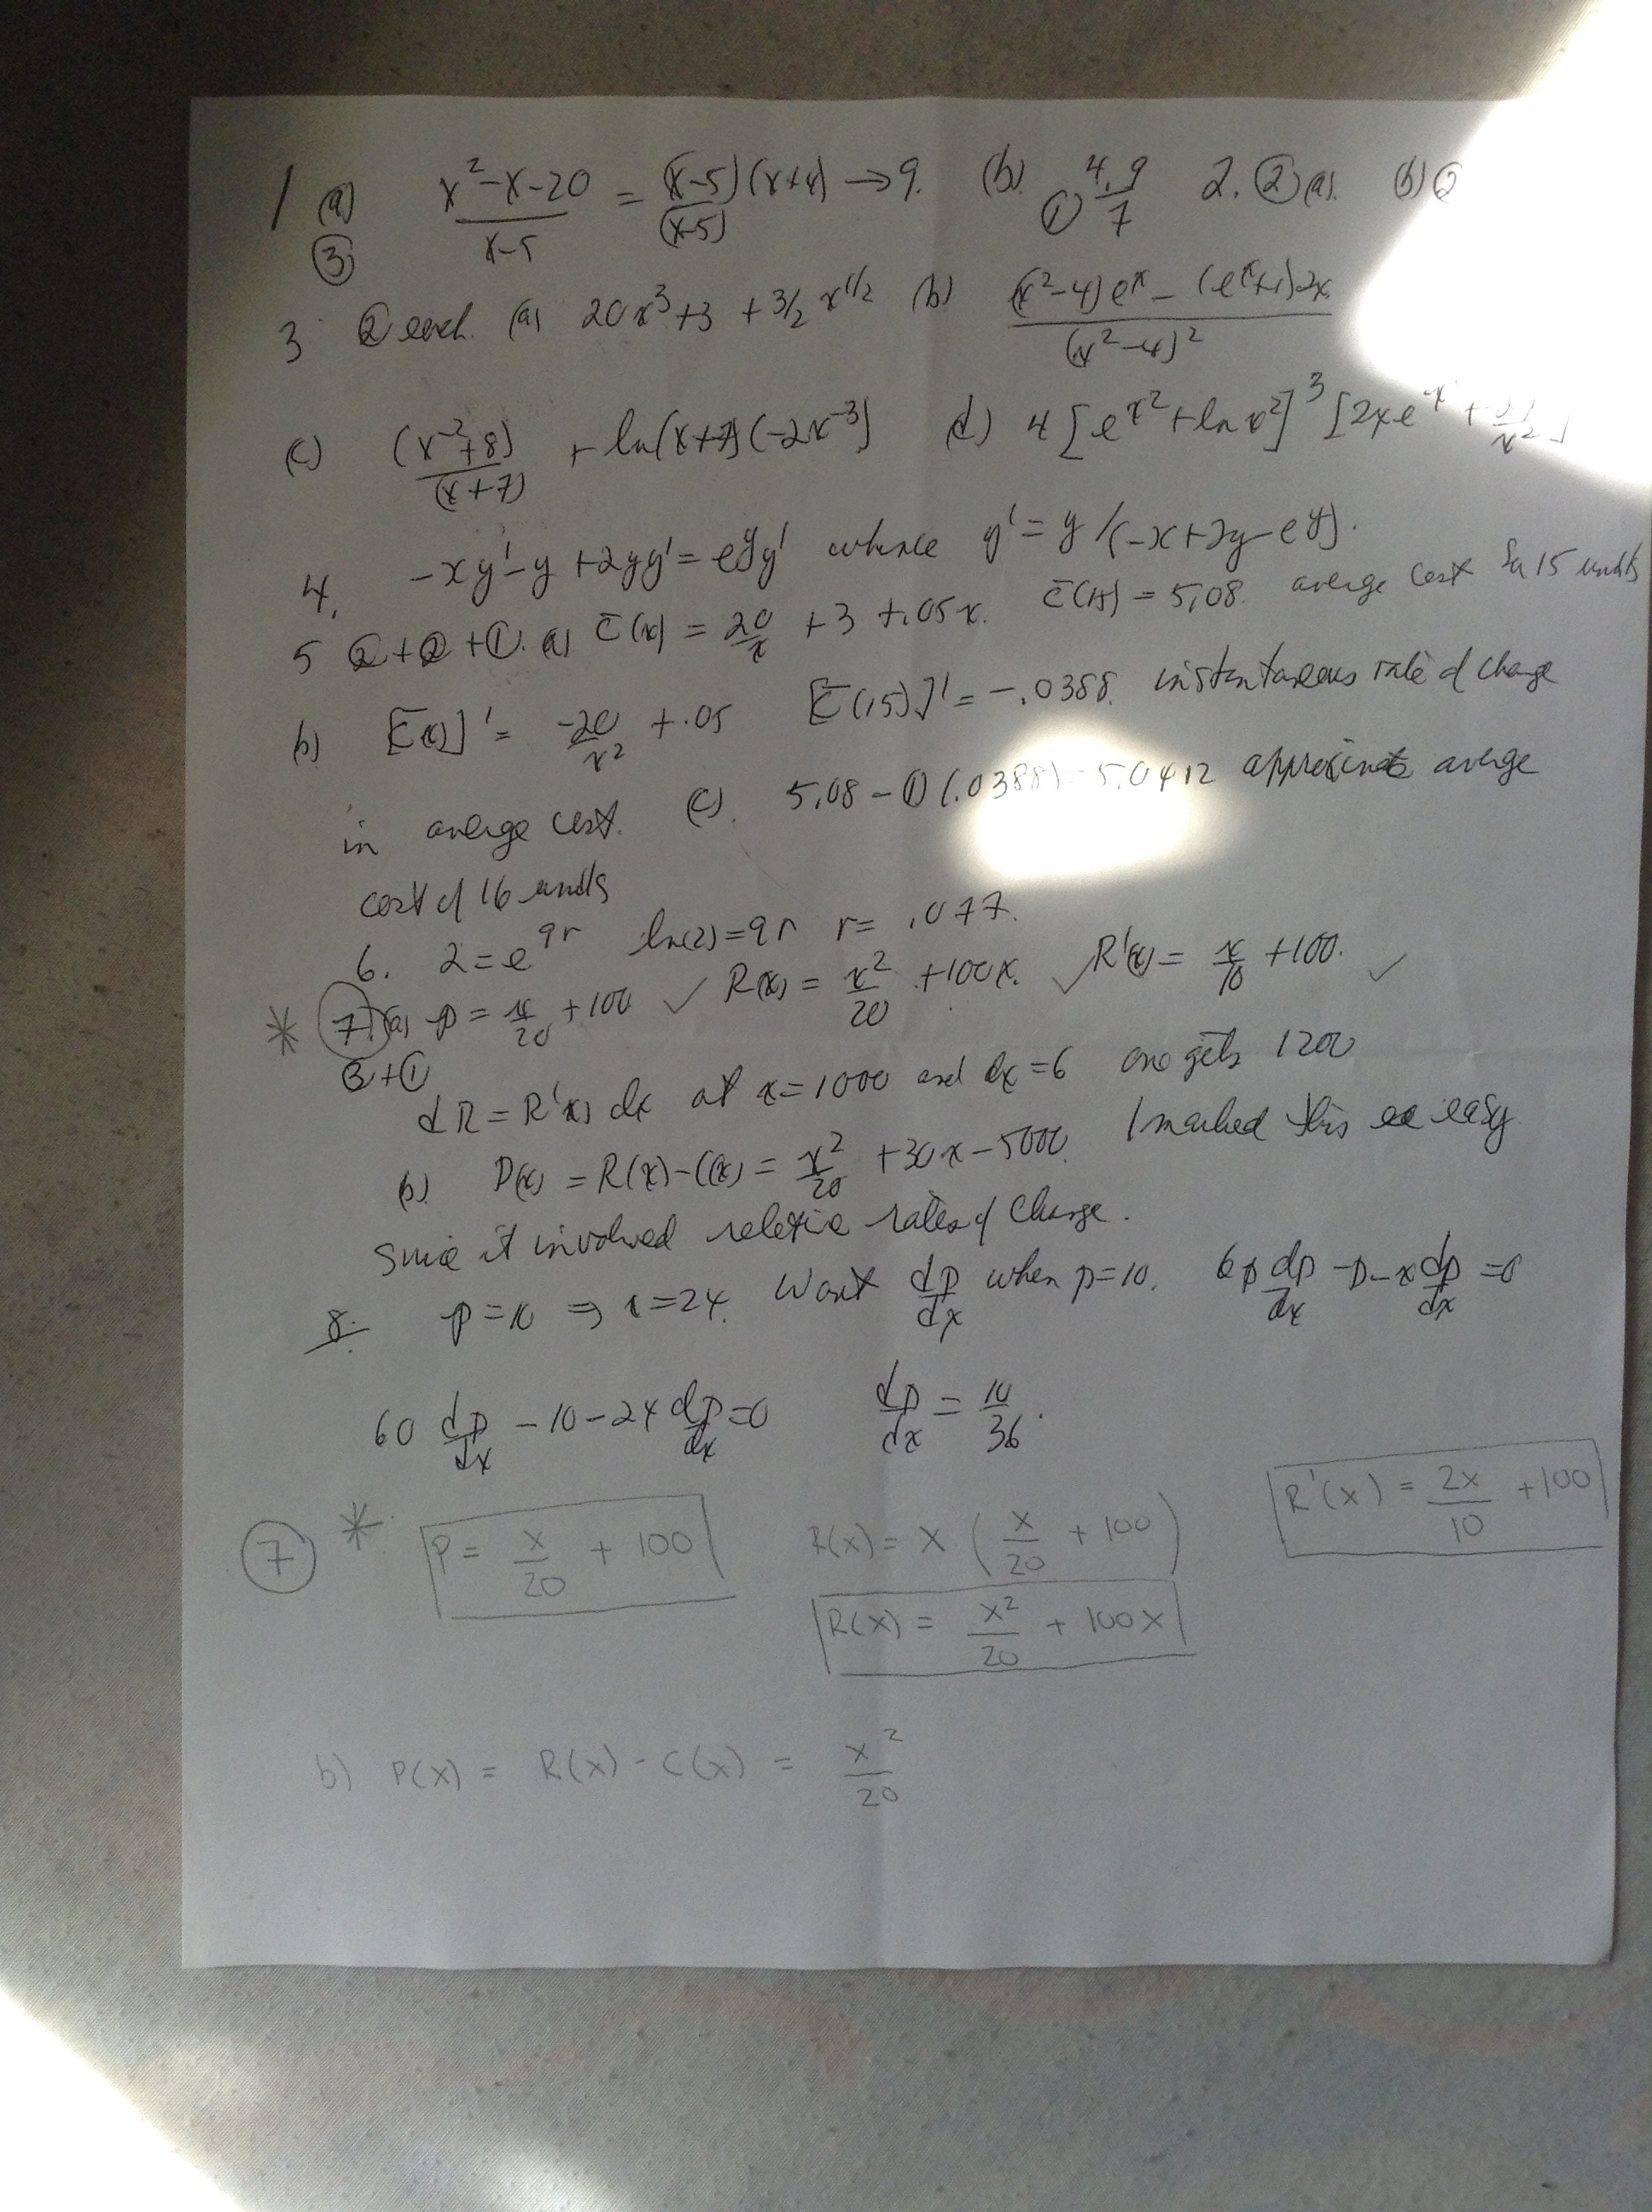 1 (a) x²-x-20 / x-5 = (x-5)(x+4) / (x-5) → 9. (b) ① 4.9 / 7 2. ② (a). (b) ②
③
3 ② each (a) 20x³+3 + 3/2 x^1/2 (b) (x²-4)e^x - (e^x+1)2x / (x²-4)²
(c) (x^-2+8) / (x+7) + ln(x+7)(-2x^-3) (d) 4[e^x²+ln x²]³ [2xe^x
4. -xy'-y+2yy'=e^y y' whence y'=y/(-x+2y-e^y).
5 ②+②+①. (a) C̄(x) = 20/x + 3 + .05x. C̄(15) = 5.08. average cost for 15 units
(b) [C̄(x)]' = -20/x² + .05 [C̄(15)]' = -.0388. instantaneous rate of change
in average cost. (c). 5.08 - ① (.0388) = 5.0412 approximate average
cost of 16 units
6. 2=e^9r ln(2)=9r r= .077.
* 7. (a) p = x/20 + 100 ✓ R(x) = x²/20 + 100x. ✓ R'(x) = x/10 + 100. ✓
③+①
dR = R'(x) dx at x=1000 and dx=6 one gets 1200
(b) P(x) = R(x)-C(x) = x²/20 + 30x - 5000. I marked this easy
since it involved relative rates of change.
8. p=10 ⇒ x=24. Want dp/dx when p=10. 6p dp/dx - p - x dp/dx = 0
60 dp/dx - 10 - 24 dp/dx = 0 dp/dx = 10/36.
⑦ * P = x/20 + 100 R(x) = x (x/20 + 100) R'(x) = 2x/10 + 100
R(x) = x²/20 + 100x
b) P(x) = R(x) - C(x) = x²/20